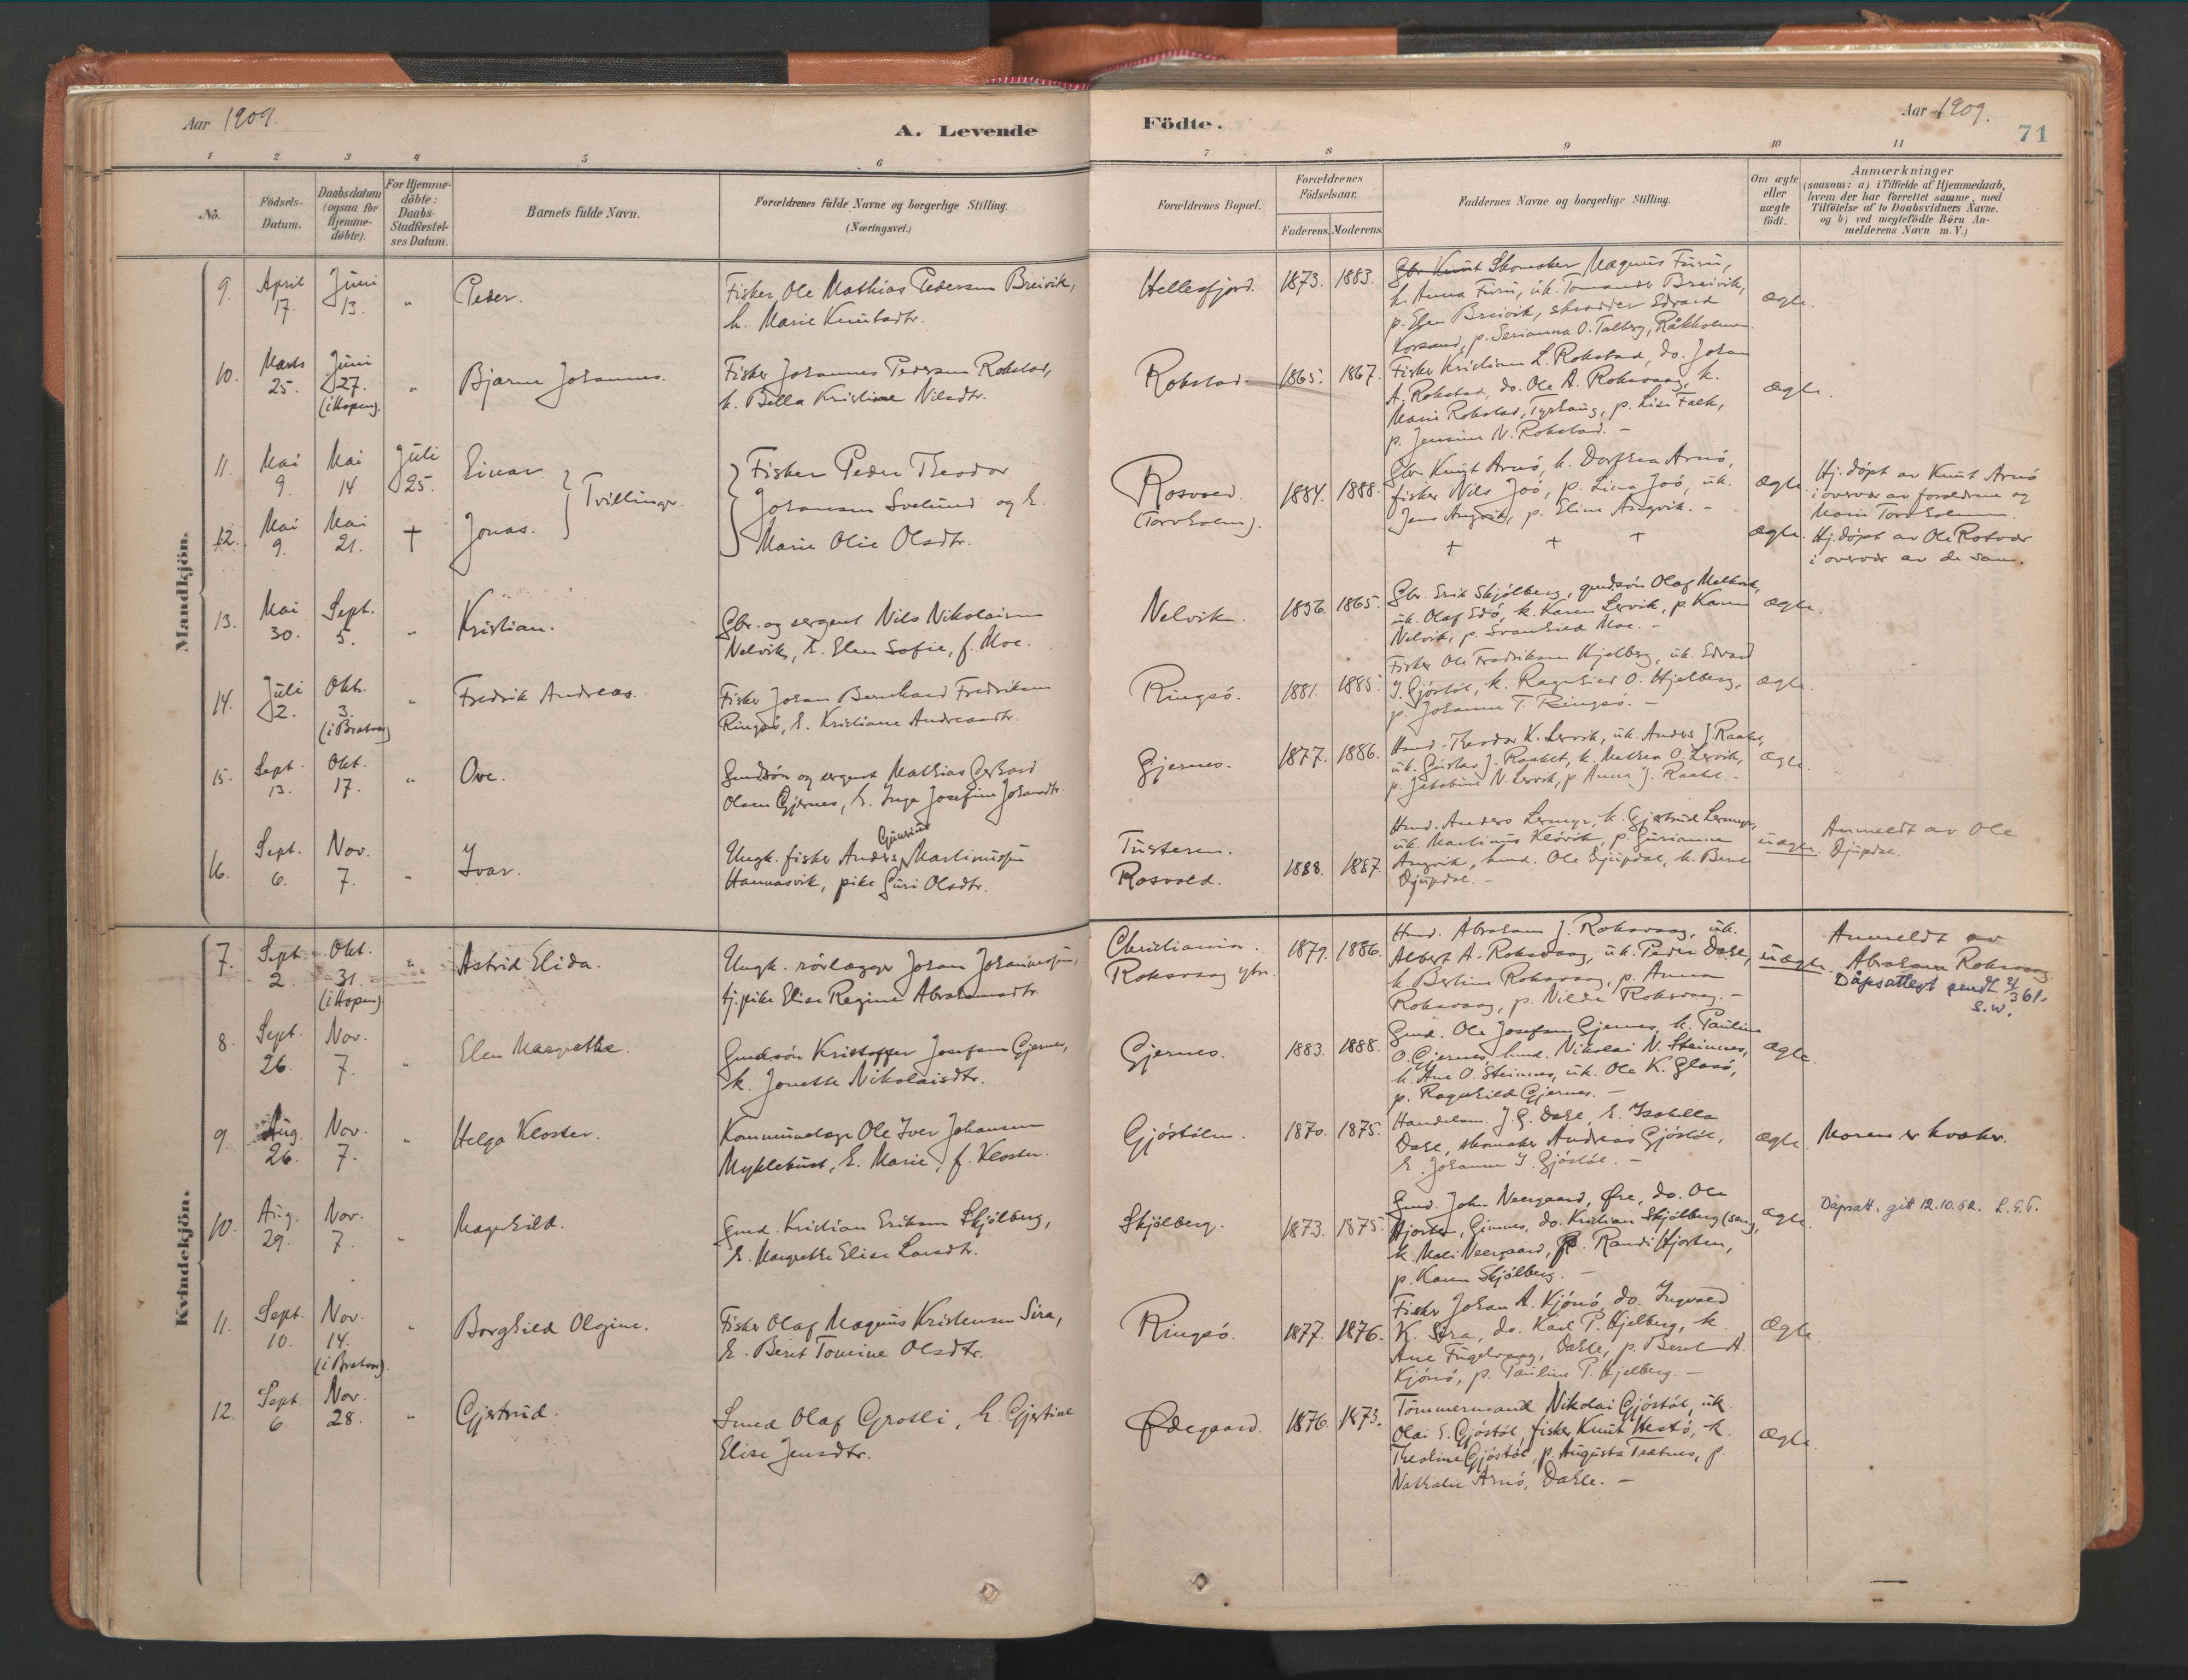 Aar 1909.
A. Levende
Födte.
Aar 1909.
71
1 2 3 4 5 6 7 8 9 10 11
No.
Födsels-
Datum.
Daabsdatum
(ogsaa for
Hjemme-
döbte).
For Hjemme-
döbte:
Daabs-
Stadfestel-
ses Datum.
Barnets fulde Navn.
Forældrenes fulde Navne og borgerlige Stilling.
(Næringsvei.)
Forældrenes Bopæl.
Forældrenes
Födselsaar.
Faderens. Moderens.
Faddernes Navne og borgerlige Stilling.
Om ægte
eller
uægte
födt.
Anmærkninger
(saasom: a) i Tilfælde af Hjemmedaab,
hvem der har forrettet samme, med
Tilföielse af to Daabsvidners Navne.
og b) ved uægtefödte Börn An-
melderens Navn m. V.)
Mandkjön.
9. April 17. Juni 13. " Peder.
Fisker Ole Mathias Pedersen Breivik,
k. Marie Knutsdtr.
Hellesfjord. 1873. 1883.
Gbr. Knut Skomaker Magnus Furu,
k. Anna Furu, uk. Tomander Breivik,
p. Elen Breivik, skrædder Edvard
Korsund, p. Serianna O. Talberg, Råkholmen
ægte.
10. Marts 25. Juni 27. (i Hopen). " Bjarne Johannes.
Fisker Johannes Pedersen Rokstad,
k. Bella Kristine Nilsdtr.
Rokstad. 1865. 1867.
Fisker Kristian L. Rokstad, do. Johan
A. Rokstad, do. Ole A. Roksvaag, k.
Marie Rokstad, Tyrhaug, p. Lise Falk,
p. Jensine N. Rokstad. –
ægte.
11. Mai 9. Mai 14 Juli 25. Einar
12. Mai 9. Mai 21. † Jonas.
Tvillinger.
Fisker Peder Theodor
Johansen Svelund og k.
Marie Olie Olsdtr.
Rosvold.
(Torvholm).
1884. 1888.
Gbr. Knut Arnö, k. Dorthea Arnö,
fisker Nils Joö, p. Lina Joö, uk.
Jens Angvik, p. Eline Angvik. –
† † †
ægte.
ægte.
Hj. döpt av Knut Arnö
i overvær av forældrene og
Marie Torvholmen.
Hj. döpt av Ole Rotvær
i overvær av de sam.
13. Mai 30. Sept. 5. " Kristian.
Gbr. og sergent Nils Nikolaisen
Nelvik, k. Elen Sofie, f. Moe.
Nelvik. 1856. 1865.
Gbr. Erik Skjölberg, gmdsön Olaf Melkvik,
uk. Olaf Edö, k. Karen Lervik, p. Karen
Nelvik, p. Svanhild Moe. –
ægte.
14. Juli 2. Okt. 3. (i Bratvær) " Fredrik Andreas.
Fisker Johan Bernhard Fredriksen
Ringsö, k. Kristiane Andreasdtr.
Ringsö. 1881. 1885.
Fisker Ole Fredriksen Hjelberg, uk. Edvard
I. Gjöstöl, k. Ragnhild O. Hjelberg,
p. Johanna T. Ringsö. –
ægte.
15. Sept. 13. Okt. 17. " Ove.
Gmdsön og sergent Mathias Gerhard
Olsen Gjernes, k. Inga Josefine Johansdtr.
Gjernes. 1877. 1886.
Hmd. Theodor K. Lervik, uk. Anders J. Raaket,
uk. Gustav J. Raaket, k. Mathea O. Lervik,
p. Jakobine N. Lervik, p. Anna J. Raaket. –
ægte.
16. Sept. 6. Nov. 7. " Ivar.
Gjurinus
Ungk. fisker Anders Martinusen
Hannasvik, pike Guri Olsdtr.
Tusteren.
Rosvold.
1888. 1887.
Hmd. Anders Lermyr, k. Gjertrud Lermyr,
uk. Martinus Klövik, p. Gurianna
Angvik, hmd. Ole Djupdal, k. Beret
Djupdal. –
uægte.
Anmeldt av Ole
Djupdal.
Kvindekjön.
7. Sept. 2. Okt. 31. (i Hopen) " Astrid Elida.
Ungk. rörlægger Johan Johannesen,
tj. pike Elise Regine Abrahamsdtr.
Christiania.
Roksvaag ytre.
1879. 1886.
Hmd. Abraham J. Roksvaag, uk.
Albert A. Roksvaag, uk. Peder Dahl,
k. Berline Roksvaag, p. Anna
Roksvaag, p. Nilda Roksvaag. –
uægte.
Anmeldt av
Abraham Roksvaag.
Dåpsattest sendt 2/3 61.
S.W.
8. Sept. 26. Nov. 7. " Elen Margrethe.
Gmdsön Kristoffer Josefsen Gjernes,
k. Jonette Nikolaisdtr.
Gjernes. 1883. 1888.
Gmd. Ole Josefsen Gjernes, k. Pauline
O. Gjernes, hmd. Nikolai N. Steinnes,
k. Ane O. Steinnes, uk. Ole K. Glasö,
p. Ragnhild Gjernes. –
ægte.
9. Aug. 26. Nov. 7. " Helga Kloster.
Kommunelæge Ole Iver Johansen
Myklebust, k. Marie, f. Kloster.
Gjöstölen. 1870. 1875.
Handelsm. J. G. Dahl, k. Isabella
Dahl, skomaker Andreas Gjöstöl,
k. Johanna I. Gjöstöl. –
ægte.
Moren er kvæker.
10. Aug. 29. Nov. 7. " Magnhild.
Gmd. Kristian Eriksen Skjölberg,
k. Margrethe Elise Larsdtr.
Skjölberg. 1873. 1875.
Gmd. John Neergaard, Øre, do. Ole
Hjorten, Gimnes, do. Kristian Skjölberg (sen),
k. Mali Neergaard, p. Randi Hjorten,
p. Karen Skjölberg. –
ægte.
Dåpsatt. gitt 12.10.62.
11. Sept. 10. Nov. 14. (i Bratvær). " Borghild Olgine.
Fisker Olaf Magnus Kristensen Sira,
k. Beret Tomine Olsdtr.
Ringsö. 1877. 1876.
Fisker Johan A. Kjönö, do. Ingvald
K. Sira, do. Karl P. Hjelberg, k.
Ane Fugelvaag, Dahle, p. Beret A.
Kjönö, p. Pauline P. Hjelberg. –
ægte.
12. Sept. 6. Nov. 28. " Gjertrud.
Smed Olaf Grotli, k. Gjertine
Elise Jensdtr.
Ødegaard. 1876. 1873.
Tömmermand Nikolai Gjöstöl, uk.
Olai E. Gjöstöl, fisker Knut Hestö, k.
Theoline Gjöstöl, p. Augusta Tratnes, p.
Nathalie Arnö, Dahle. –
ægte.